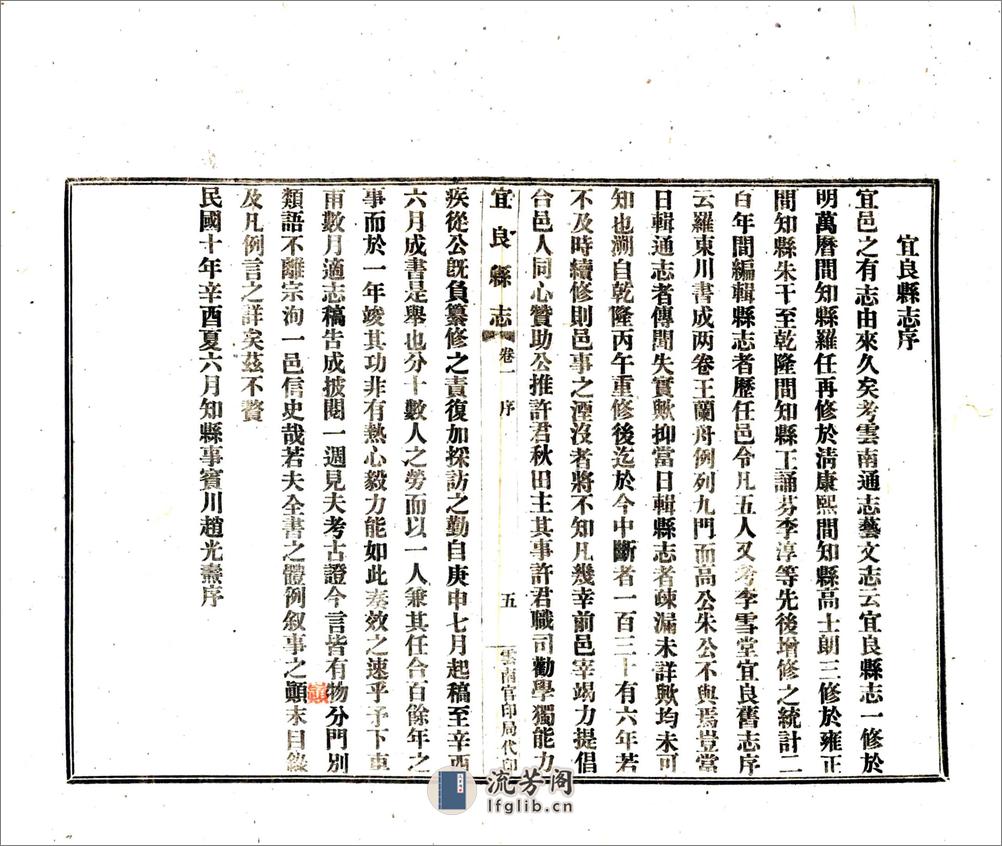 宜良縣志序
宜邑之有志由來久矣考雲南通志藝文志云宜良縣志一修於
明萬曆間知縣羅任再修於淸康熙間知縣高士朗三修於雍正
間知縣朱干至乾隆間知縣王誦芬李淳等先後增修之統計二
百年間編輯縣志者歷任邑令凡五人又考李雪堂宜良舊志序
云羅東川書成两卷王蘭舟例列九門而高公朱公不與焉豈當
日輯通志者傳聞失實歟抑當日輯縣志者疎漏未詳歟均未可
知也溯自乾隆丙午重修後迄於今中斷者一百三十有六年若
不及時續修則邑事之湮沒者將不知凡幾幸前邑宰竭力提倡
合邑人同心贊助公推許君秋田主其事許君職司勸學獨能力
宜良縣志 卷一 序 五 雲南官印局代印
疾從公旣負纂修之責復加採訪之勤自庚申七月起稿至辛酉
六月成書是舉也分十數人之勞而以一人兼其任合百餘年之
事而於一年竣其功非有熱心毅力能如此奏效之速乎予下車
甫數月適志稿告成披閱一週見夫考古證今言皆有物分門別
類語不離宗洵一邑信史哉若夫全書之體例叙事之顚末目錄
及凡例言之詳矣茲不贅
民國十年辛酉夏六月知縣事賓川趙光燾序
流芳阁
lfglib.cn